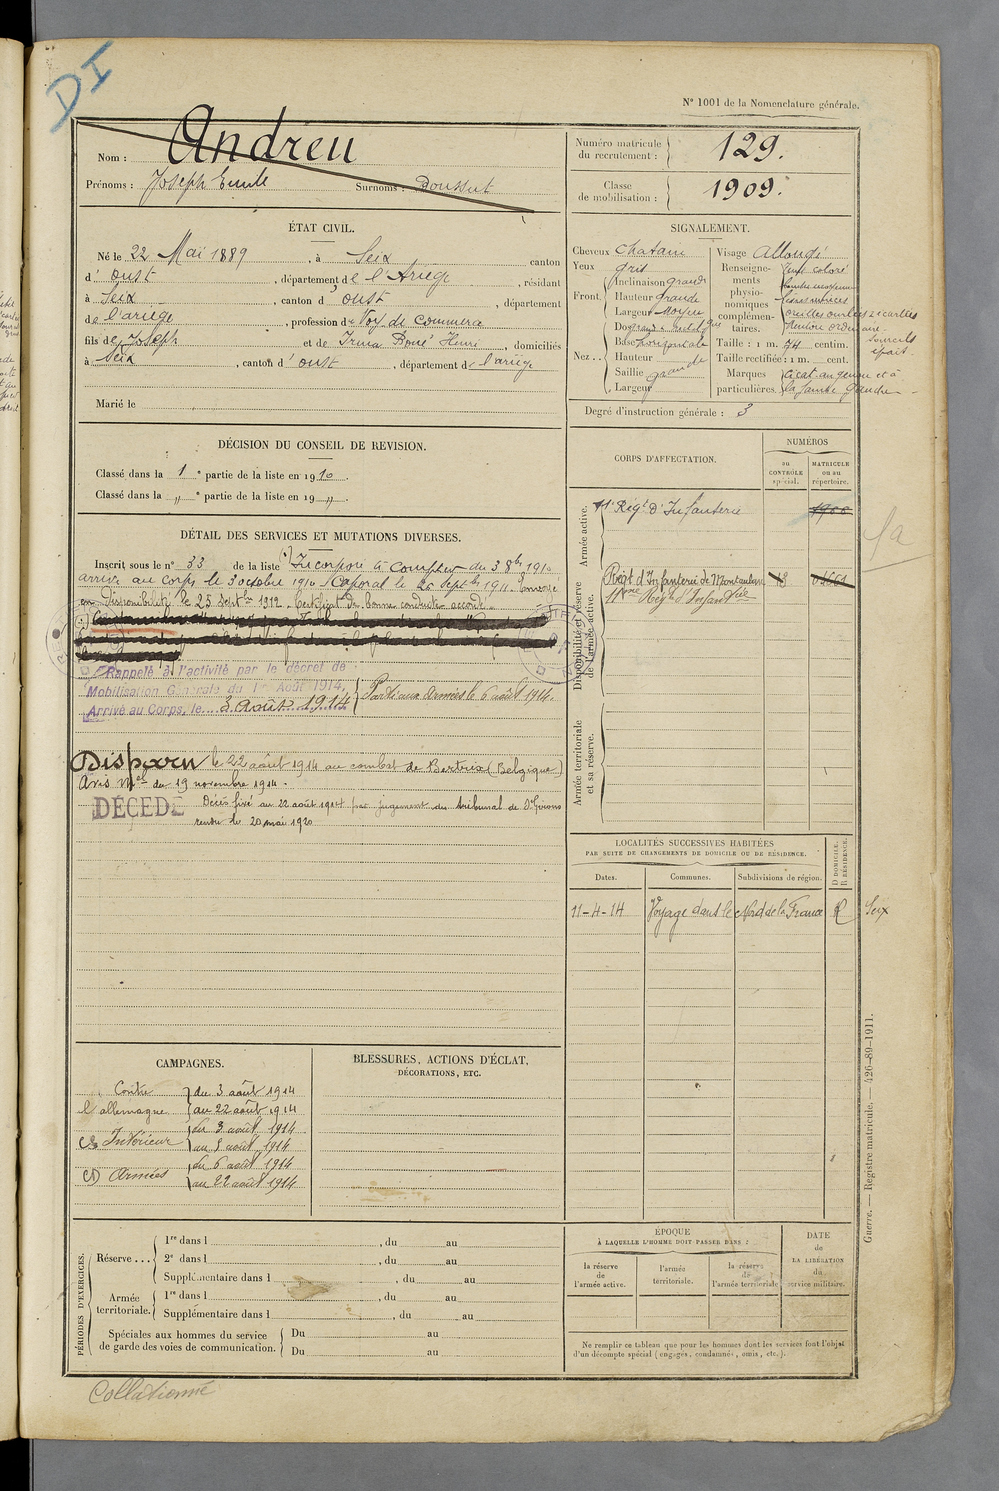 DI
N° 1001 de la Nomenclature générale.
Nom : Andreu
Prénoms : Joseph Emile Surnoms : Doussut
Numéro matricule du recrutement : 129.
Classe de mobilisation : 1909.
ÉTAT CIVIL.
Né le 22 Mai 1889, à Seix canton
d' oust, département de l'Ariège, résidant
à Seix, canton d' oust, département
de l'ariège, profession de Voy. de Commerce
fils de Joseph et de Irma Henri, domiciliés
à Seix, canton d' oust, département de l'ariège
Marié le
SIGNALEMENT.
Cheveux chatain
Yeux gris
Front. Inclinaison grande
Hauteur grande
Largeur moyen
Nez Dos
Base horizontale
Hauteur
Saillie grande
Largeur
Visage Allongé
Renseignements physionomiques complémentaires.
Teint coloré
oreilles ourlées écartées
menton ordinaire
sourcils épais.
Taille : 1 m. 74 centim.
Taille rectifiée : 1 m. cent.
Marques particulières. cicat. au genou et à
la jambe gauche
Degré d'instruction générale : 3
DÉCISION DU CONSEIL DE REVISION.
Classé dans la 1e partie de la liste en 1910.
Classé dans la " e partie de la liste en 19 ".
CORPS D'AFFECTATION.
NUMÉROS
au CONTRÔLE spécial.
MATRICULE ou au répertoire.
Armée active.
11e Régt d'Infanterie
Disponibilité et réserve de l'armée active.
Régt d'Infanterie de Montauban
11ème Régt d'Infanterie
Armée territoriale et sa réserve.
DÉTAIL DES SERVICES ET MUTATIONS DIVERSES.
Inscrit sous le n° 33 de la liste Incorporé à compter du 3 8bre 1910
arrivé au corps le 3 octobre 1910. Caporal le 26 Septbre 1911. Envoyé
en disponibilité le 25 Septbre 1912. Certificat de bonne conduite accordé.
Rappelé à l'activité par le décret de
Mobilisation Générale du 1er Août 1914,
Arrivé au Corps, le 3 Août 1914
Parti aux armées le 6 août 1914.
Disparu le 22 août 1914 au combat de Bertrix (Belgique)
Avis Mel du 19 novembre 1914.
DÉCÉDÉ
Décès fixé au 22 août 1914 par jugement du tribunal de St Girons
rendu le 20 mai 1920
LOCALITÉS SUCCESSIVES HABITÉES
PAR SUITE DE CHANGEMENTS DE DOMICILE OU DE RÉSIDENCE.
Dates. Communes. Subdivisions de région. D DOMICILE. R RÉSIDENCE.
11-4-14 Voyage dans le Nord de la France R Seix
CAMPAGNES.
Contre l'allemagne du 3 août 1914
au 22 août 1914
Intérieur du 3 août 1914
au 5 août 1914
Armées du 6 août 1914
au 22 août 1914
BLESSURES, ACTIONS D'ÉCLAT,
DÉCORATIONS, ETC.
PÉRIODES D'EXERCICES.
Réserve ... 1re dans l , du au
2e dans l , du au
Supplémentaire dans l , du au
Armée territoriale. 1re dans l , du au
Supplémentaire dans l , du au
Spéciales aux hommes du service
de garde des voies de communication. Du au
Du au
ÉPOQUE
À LAQUELLE L'HOMME DOIT PASSER DANS :
la réserve de l'armée active.
l'armée territoriale.
la réserve de l'armée territoriale
DATE de LA LIBÉRATION du service militaire.
Ne remplir ce tableau que pour les hommes dont les services font l'objet
d'un décompte spécial (engagés, condamnés, omis, etc.).
Guerre. — Registre matricule. — 426-89-1911.
Collationné